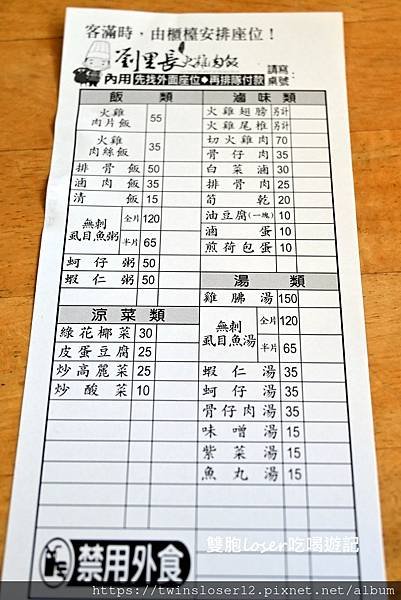 客滿時，由櫃檯安排座位！
劉里長火雞肉飯
請寫：
桌號：
內用 先找外面座位◆再排隊付款
飯類
火雞肉片飯 55
火雞肉絲飯 35
排骨飯 50
滷肉飯 35
清飯 15
無刺虱目魚粥 全片 120
半片 65
蚵仔粥 50
蝦仁粥 50
涼菜類
綠花椰菜 30
皮蛋豆腐 25
炒高麗菜 25
炒酸菜 10
滷味類
火雞翅膀 另計
火雞尾椎 另計
切火雞肉 70
骨仔肉 35
白菜滷 30
排骨肉 25
筍乾 20
油豆腐(一塊) 10
滷蛋 10
煎荷包蛋 10
湯類
雞胇湯 150
無刺虱目魚湯 全片 120
半片 65
蝦仁湯 35
蚵仔湯 35
骨仔肉湯 35
味噌湯 15
紫菜湯 15
魚丸湯 15
禁用外食
雙胞loser吃喝遊記
https://twinsloser12.pixnet.net/album